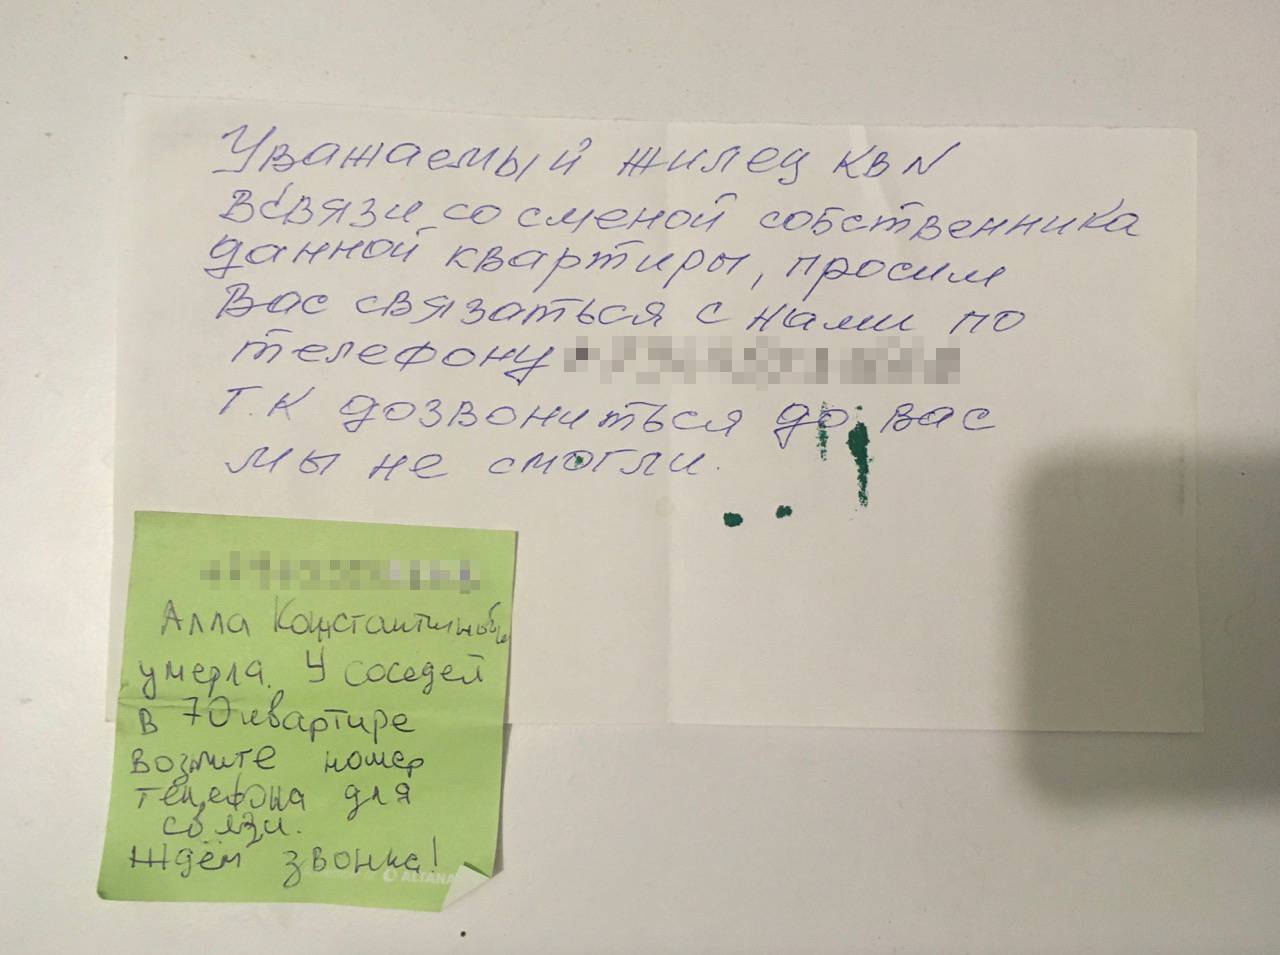 Уважаемый жилец кв N
Всвязи со сменой собственника
данной квартиры, просим
Вас связаться с нами по
телефону
т.к дозвониться до вас
мы не смогли.
Алла Константиновна
умерла. У соседей
в 70 квартире
возмите номер
телефона для
связи.
Ждём звонка!
ALTANA